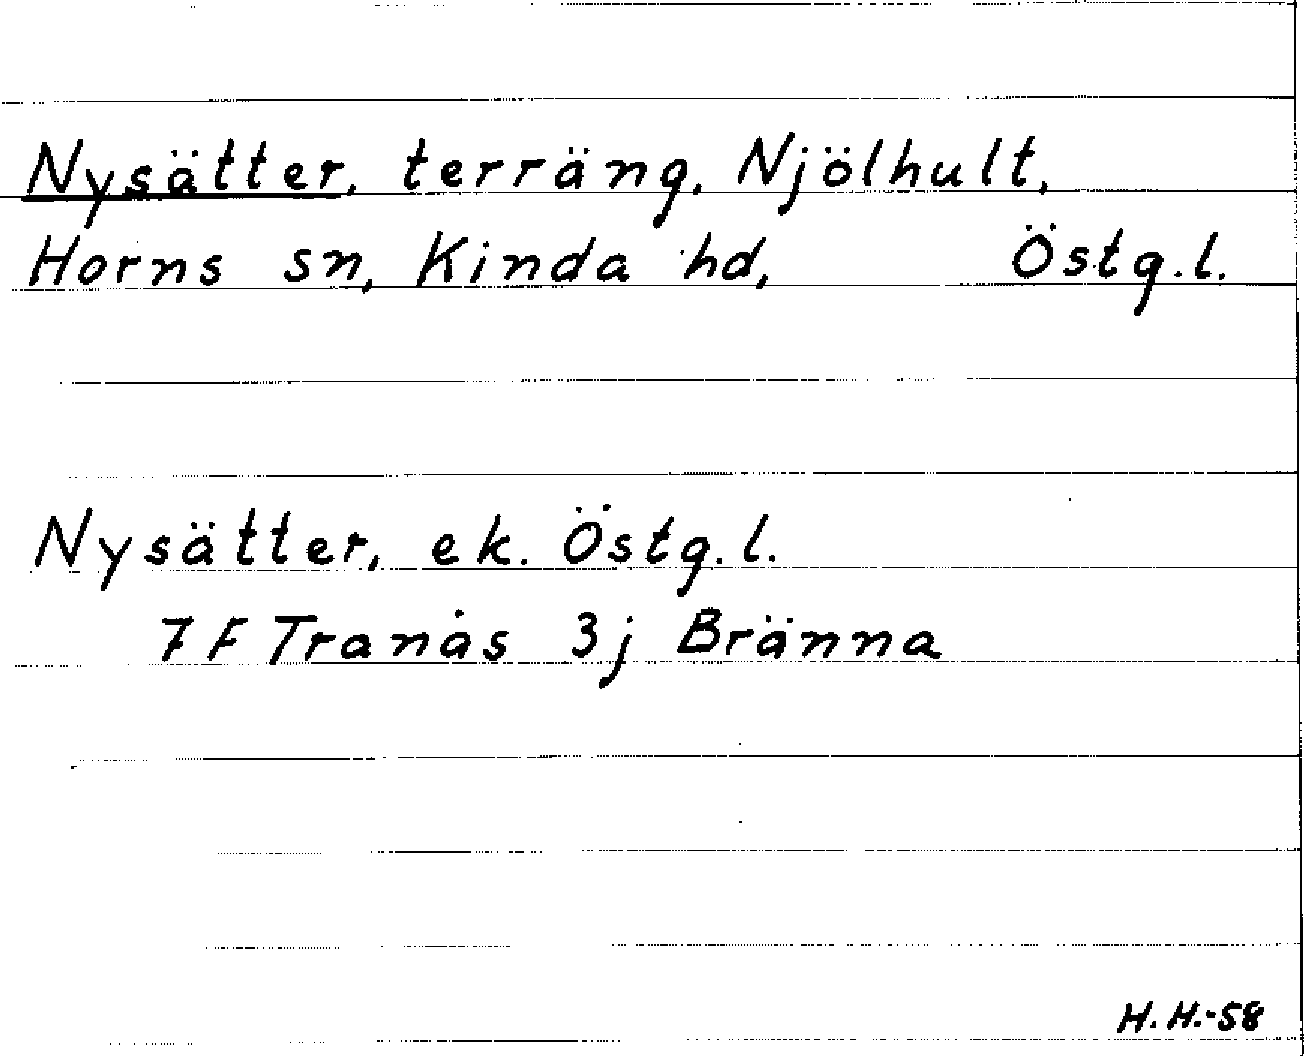 Nysätter, terräng, Njölhult,
Horns sn, Kinda hd, Östg.l.
Nysätter, ek. Östg.l.
7 F Tranås 3j Bränna
H. H.-58